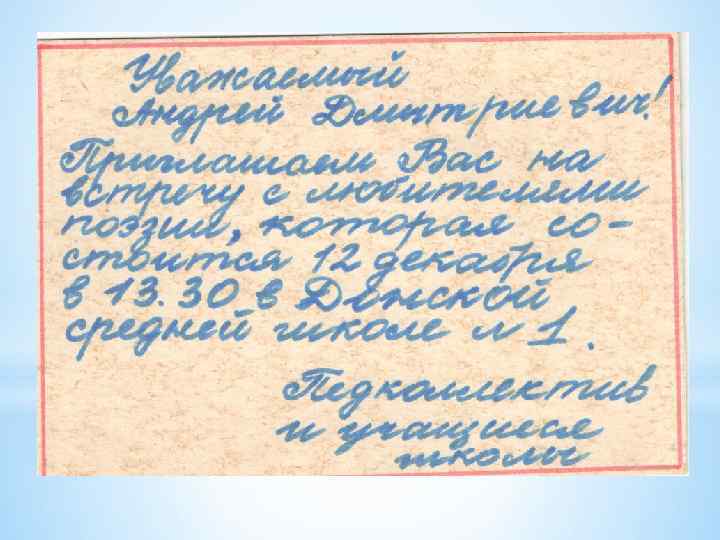 Уважаемый
Андрей Дмитриевич!
Приглашаем Вас на
встречу с любителями
поэзии, которая со-
стоится 12 декабря
в 13.30 в Донской
средней школе № 1.
Педколлектив
и учащиеся
школы